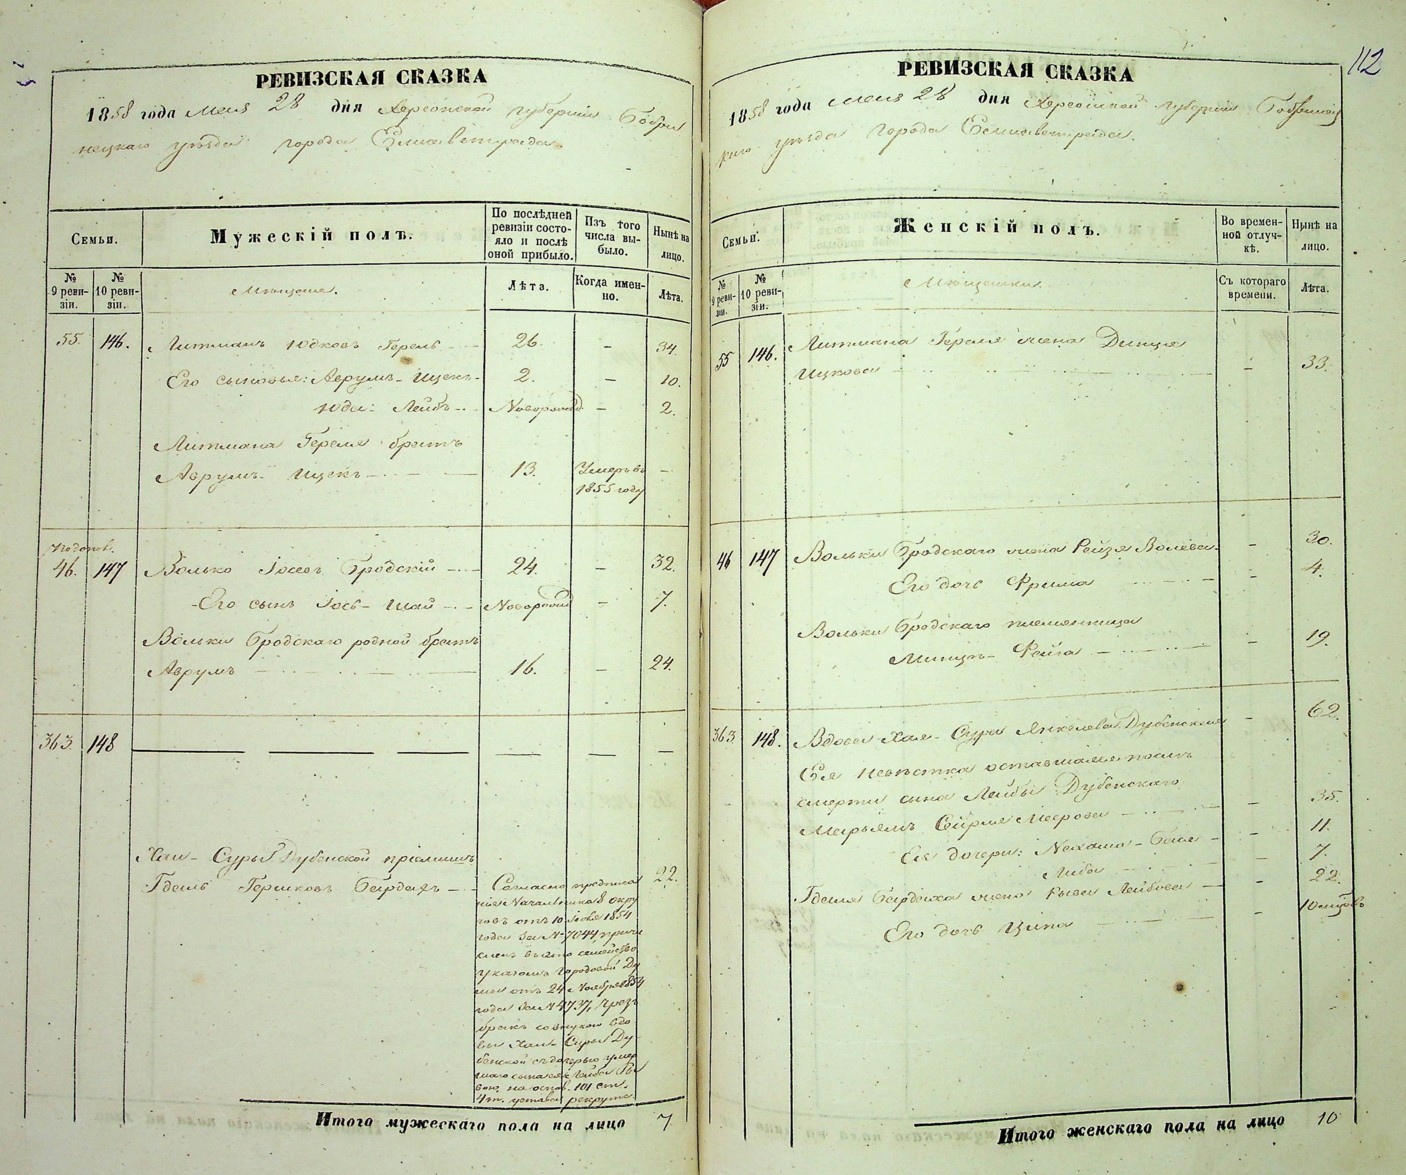 112
РЕВИЗСКАЯ СКАЗКА
1858 года Мая 28 дня Херсонской губернии Бобри
нецкаго уѣзда города Елисаветграда
Семьи.
Мужескій полъ.
По послѣдней ревизіи состояло и послѣ оной прибыло.
Изъ того числа выбыло.
Нынѣ на лицо.
№ 9 ревизіи.
№ 10 ревизіи.
Мѣщане.
Лѣта.
Когда именно.
Лѣта.
55. 146. Литманъ Юдковъ Герель 26. – 34.
Его сыновья: Аврумъ-Ицекъ 2. – 10.
Юда-Лейбъ Новорожд – 2.
Литмана Гереля братъ
Аврумъ-Ицекъ 13. Умеръ въ –
1855 году
46. 147 Волько Іосевъ Бродскій 24. – 32.
Его сынъ Іось-Шай Новорожд – 7.
Вольки Бродскаго родной братъ
Аврумъ 16. – 24.
363. 148 — — — —
Хаи-Суры Дубенской пріемышъ
Гдаль Гершковъ Бардахъ 22.
Согласно предписа
нія Начальника 8 окру
говъ отъ 10 1854
года за № 7044 причи
сленъ въ это семейство
указомъ Городовой Ду
мы отъ 24 Ноября 1854
года за № 4737, чрезъ
бракъ со внукою вдо
вы Хаи-Суры Ду
бенской съ дочерью умер
шаго сына ея Лейбы
на основ. 101 ст.
4 т. устава рекрутс
Итого мужескаго пола на лицо 7
РЕВИЗСКАЯ СКАЗКА
1858 года Мая 28 дня Херсонской губернии Бобринец
каго уѣзда города Елисаветграда.
Семьи.
Женскій полъ.
Во временной отлучкѣ.
Нынѣ на лицо.
№ 9 ревизіи.
№ 10 ревизіи.
Мѣщанки.
Съ котораго времени.
Лѣта.
55 146. Литмана Гереля жена Динця
Ицкова – 33.
46 147 Вольки Бродскаго жена Рейзя Волева – 30.
Его дочь Фрима – 4.
Вольки Бродскаго племянница
Минцъ-Фейга – 19.
363. 148. Вдова Хая-Сура Янкелева Дубенская – 62.
Ея невѣстка оставшаяся послѣ
смерти сына Лейбы Дубенскаго
Марьямъ Сирля Меерова – 35.
Ея дочери: Нехама-Бейля – 11.
Либа – 7.
Гдаля Бардаха жена Рыва Лейбова – 22.
Его дочь Ципа – 10 мѣсяцовъ
Итого женскаго пола на лицо 10